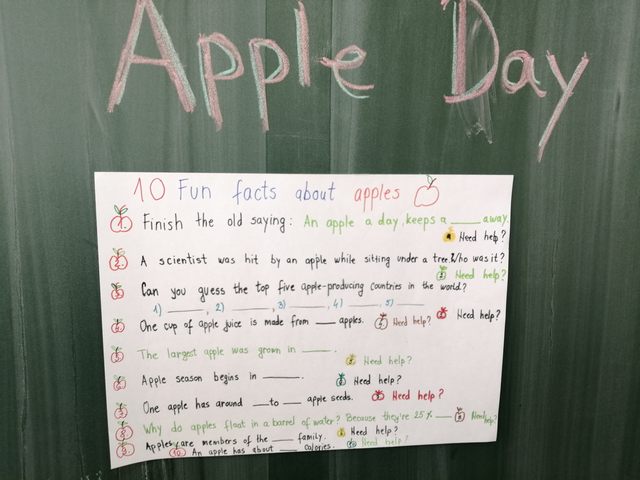 Apple Day
10 Fun facts about apples
1. Finish the old saying: An apple a day, keeps a ____ away.
Need help?
2. A scientist was hit by an apple while sitting under a tree. Who was it?
Need help?
3. Can you guess the top five apple-producing countries in the world?
1) ____, 2) ____, 3) ____, 4) ____, 5) ____
Need help?
4. One cup of apple juice is made from ____ apples. Need help?
5. The largest apple was grown in ____.
Need help?
6. Apple season begins in ____. Need help?
7. One apple has around __ to __ apple seeds. Need help?
8. Why do apples float in a barrel of water? Because they're 25% ____ Need help?
9. Apples are members of the ____ family. Need help?
10. An apple has about ____ calories. Need help?